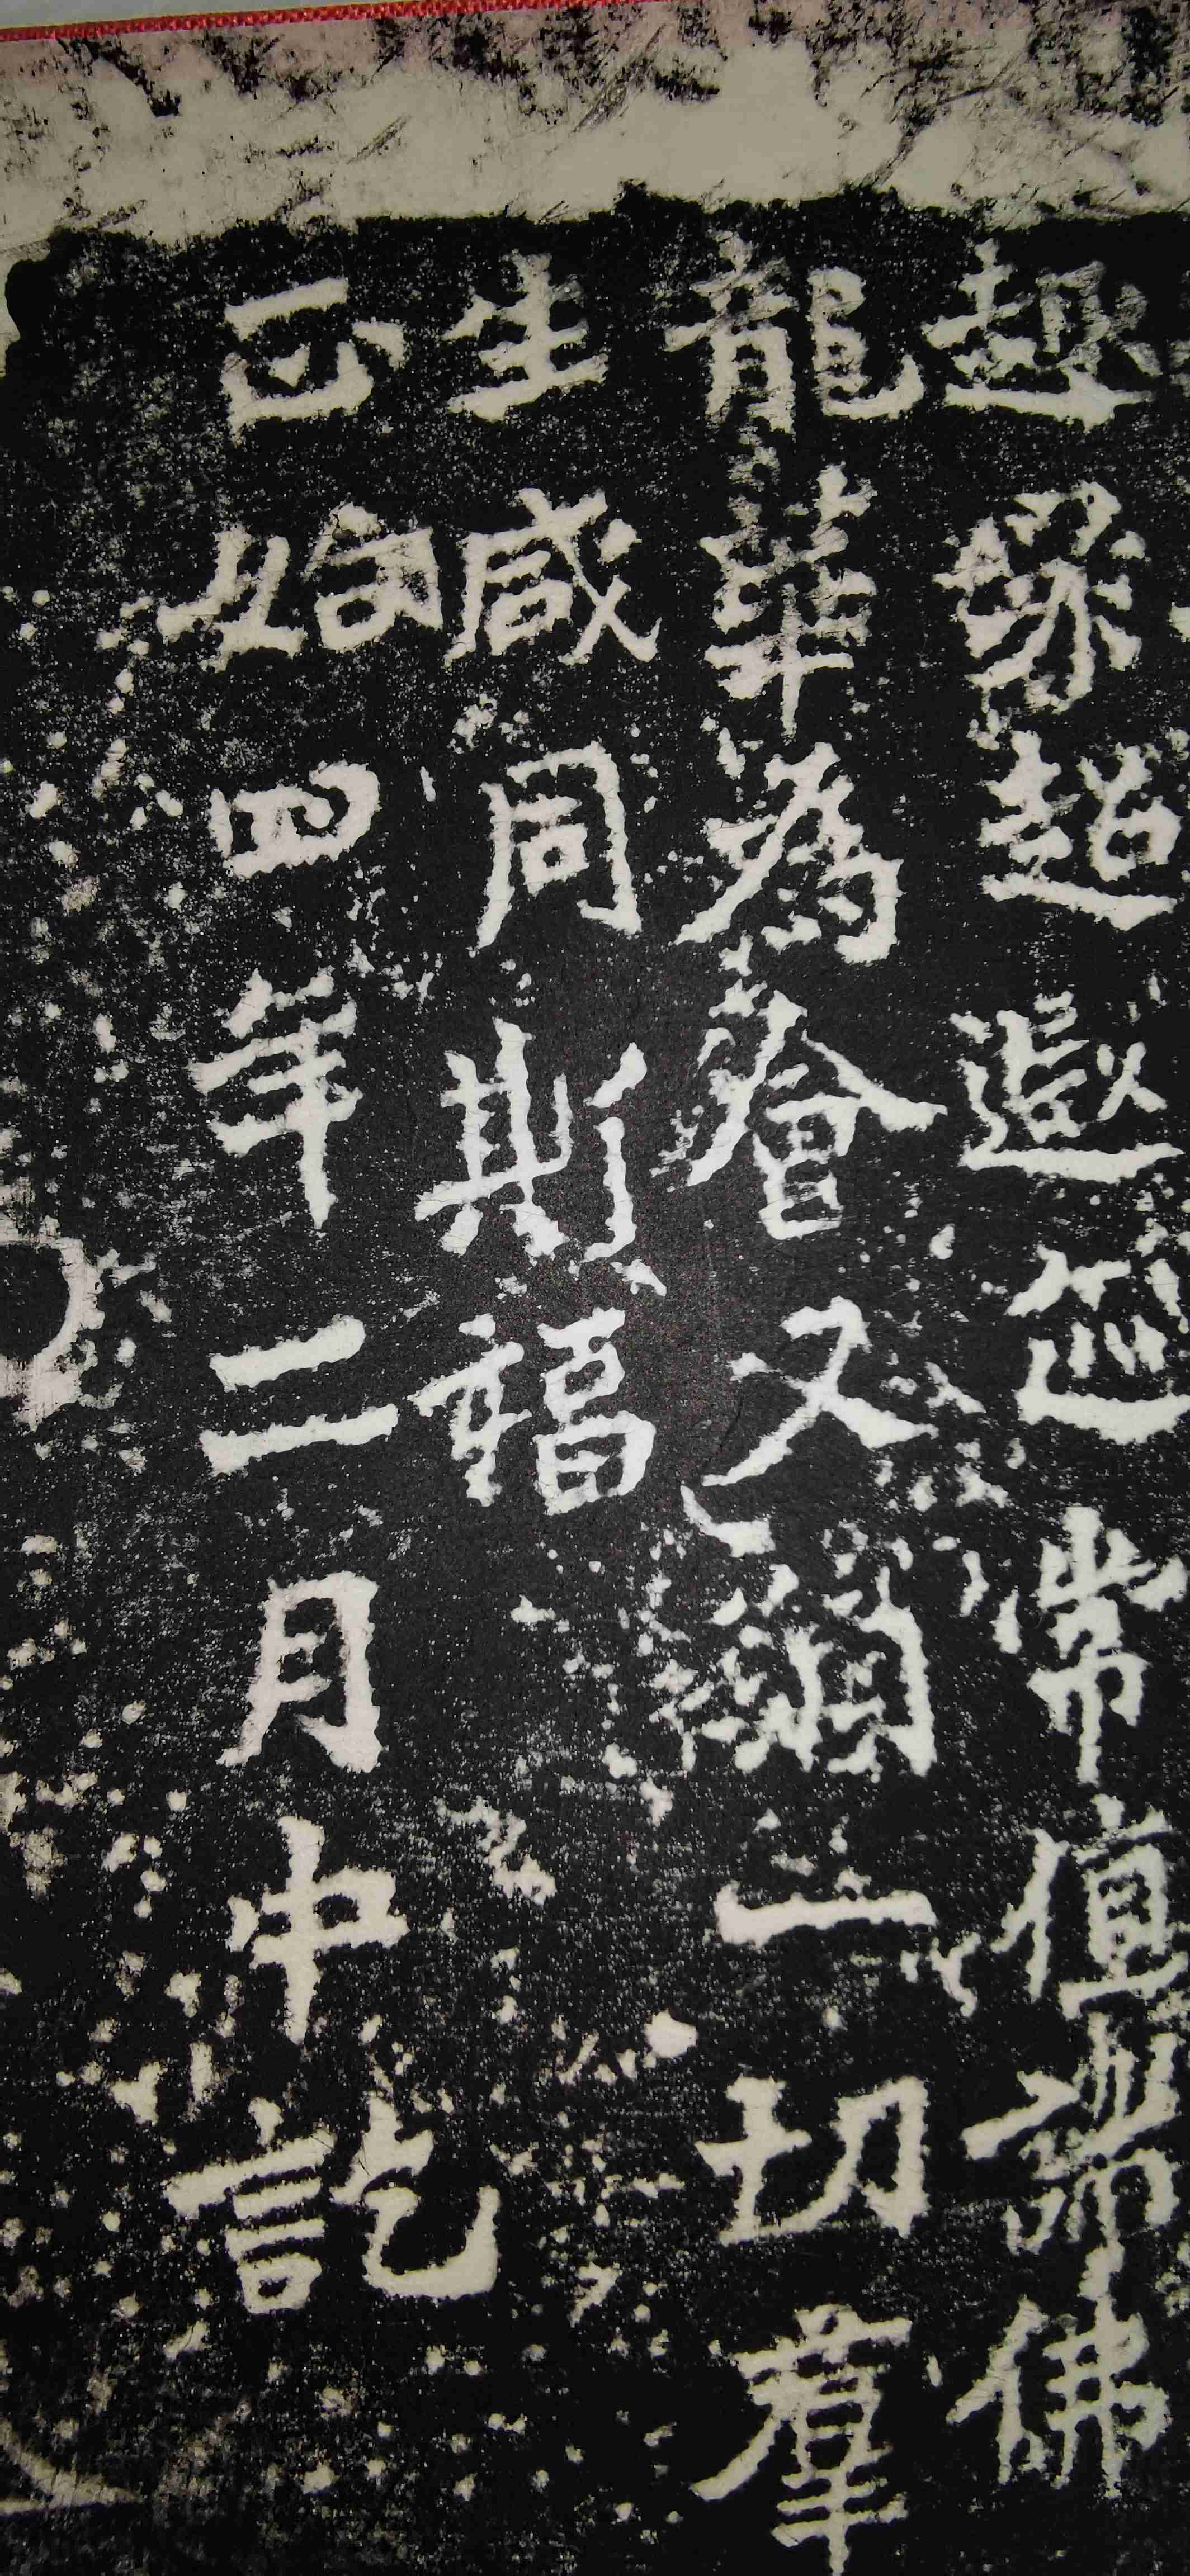 趣超遐迹常值諸佛
龍華為會又願一切羣
生咸同斯福
正始四年二月中訖